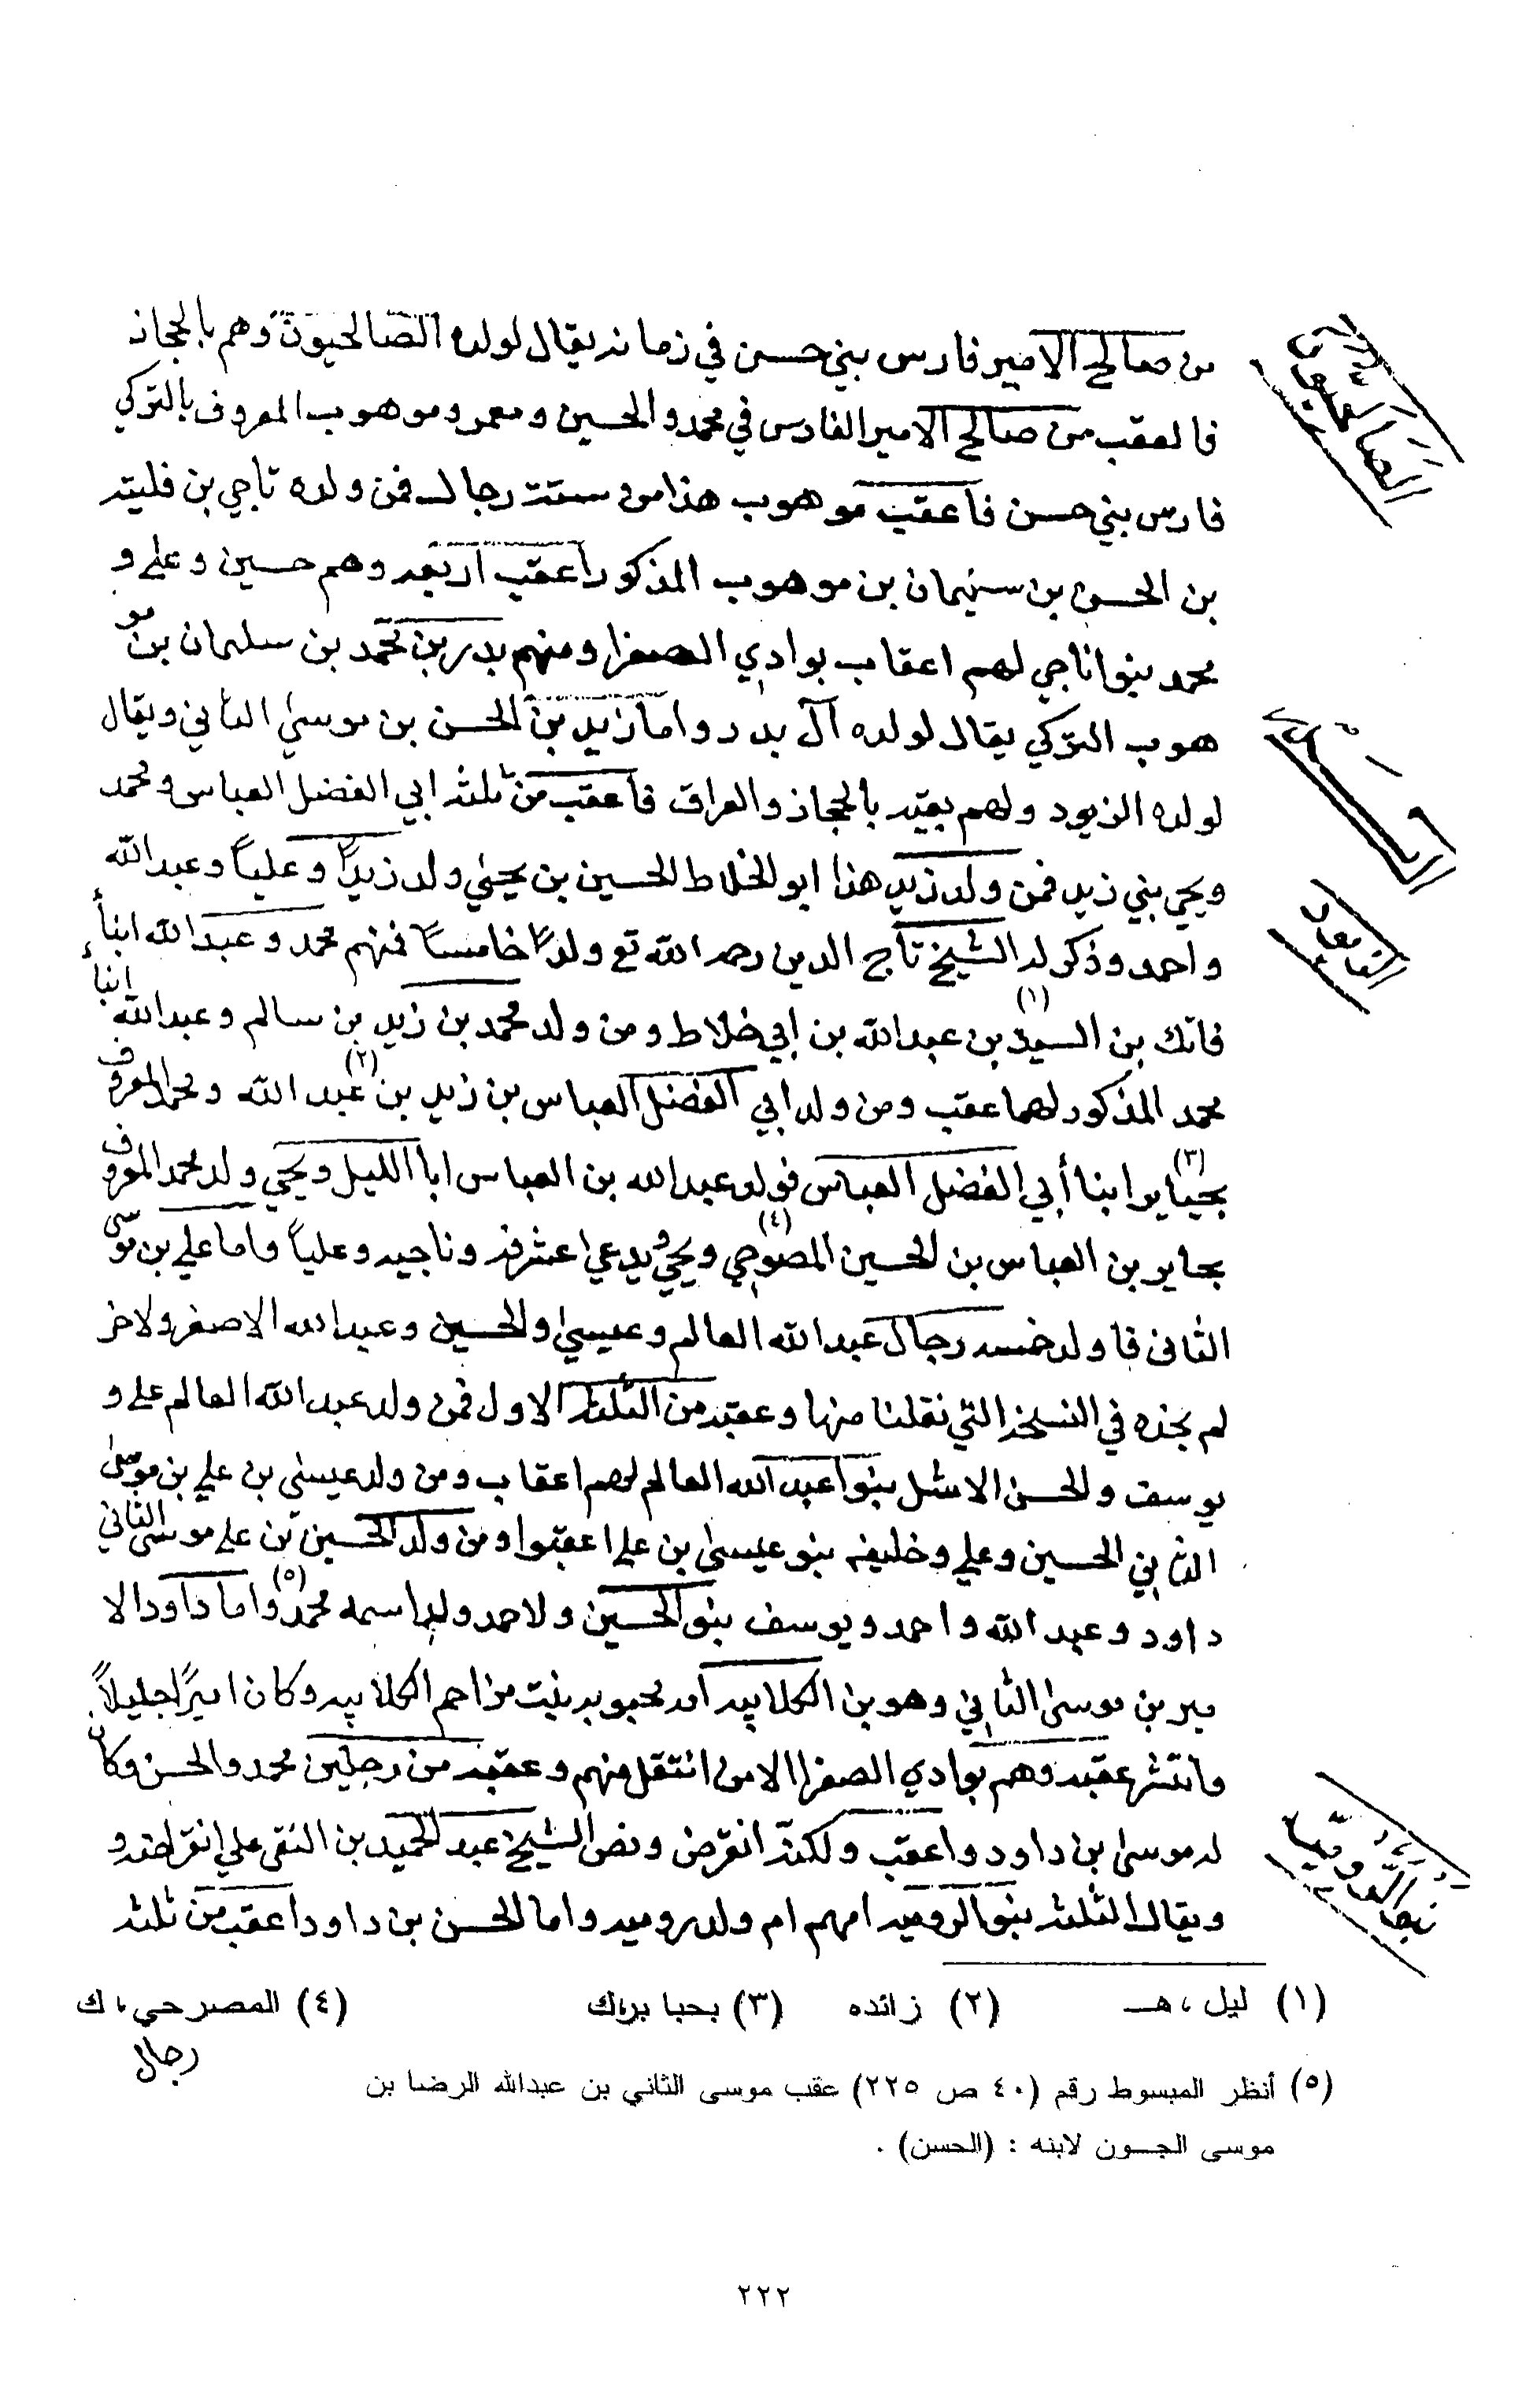 من صالح الامير فارس بني حسن في زمانه يقال لولده الصالحيون وهم بالحجاز
الصالحيون
فالعقب من صالح الامير الفارس في محمد والحسين ومعمر وموهوب المعروف بالتركي
فارس بني حسن فاعقب موهوب هذا من ستة رجال فمن ولده ناجي بن فليته
بن الحسن بن سليمان بن موهوب المذكور اعقب اربعه وهم حسين وعلي و
محمد بنوا ناجي لهم اعقاب بوادي الصفرا ومنهم بدر بن محمد بن سلمان بن مو
هوب التركي يقال لولده آل بدر واما زيد بن الحسن بن موسى الثاني ويقال
لولده الزيود ولهم بقيه بالحجاز والعراق فاعقب من ثلثه ابي الفضل العباس ومحمد
ويحي بني زيد فمن ولد زيد هذا ابو الخلاط الحسين بن يحيى ولد زيداً وعلياً وعبدالله
واحمد وذكر له الشيخ تاج الدين رحمه الله تع ولداً خامساً فمنهم محمد وعبدالله ابناء
فاتك بن السيد (١) بن عبدالله بن ابي خلاط ومن ولد محمد بن زيد بن سالم وعبدالله ابناء
محمد المذكور لهما عقب ومن ولد ابي الفضل العباس بن زيد بن (٢) عبد الله ومحمد المعروف
بحيابر (٣) ابنا أبي الفضل العباس فولد عبدالله بن العباس ابا الليل ويحي ولد محمد المعروف
بحابر بن العباس بن الحسين المصوحي (٤) ويحي ويدعي اعشرفه وناجيه وعلياً واما علي بن موسى
الثاني فاولد خمسه رجال عبدالله العالم وعيسى والحسين وعبدالله الاصغر ولاخر
لم نجده في النسخه التي نقلنا منها وعقبه من الثلثه الاول فمن ولد عبدالله العالم علي و
يوسف والحسن الاشل بنوا عبدالله العالم لهم اعقاب ومن ولد عيسى بن علي بن موسى
الثاني الحسين وعلي وخليفه بنو عيسى بن علي اعقبوا ومن ولد الحسين بن علي موسى الثاني
داود وعبد الله واحمد ويوسف بنو الحسين ولاحمد ولد اسمه محمد (٥) واما داود الا
مير بن موسى الثاني وهو بن الكلابيه امه محبوبه بنت مزاحم الكلابيه وكان اميراً جليلاً
وانتشر عقبه وهم بوادي الصفرا الا من انتقل منهم وعقبه من رجلين محمد والحسن وكان
له موسى بن داود واعقب ولكنه انقرض ونص الشيخ عبد الحميد بن التقي علي انقراضه و
ويقال الثلثه بنو الروميه امهم ام ولد روميه واما الحسن بن داود اعقب من ثلثه
رجال
(١) ليل ، هـ (٢) زائده (٣) بحبا بر،ك (٤) المصرحي ، ك
(٥) أنظر المبسوط رقم (٤٠ ص ٢٢٥) عقب موسى الثاني بن عبدالله الرضا بن
موسى الجون لابنه : (الحسن) .
٢٢٢